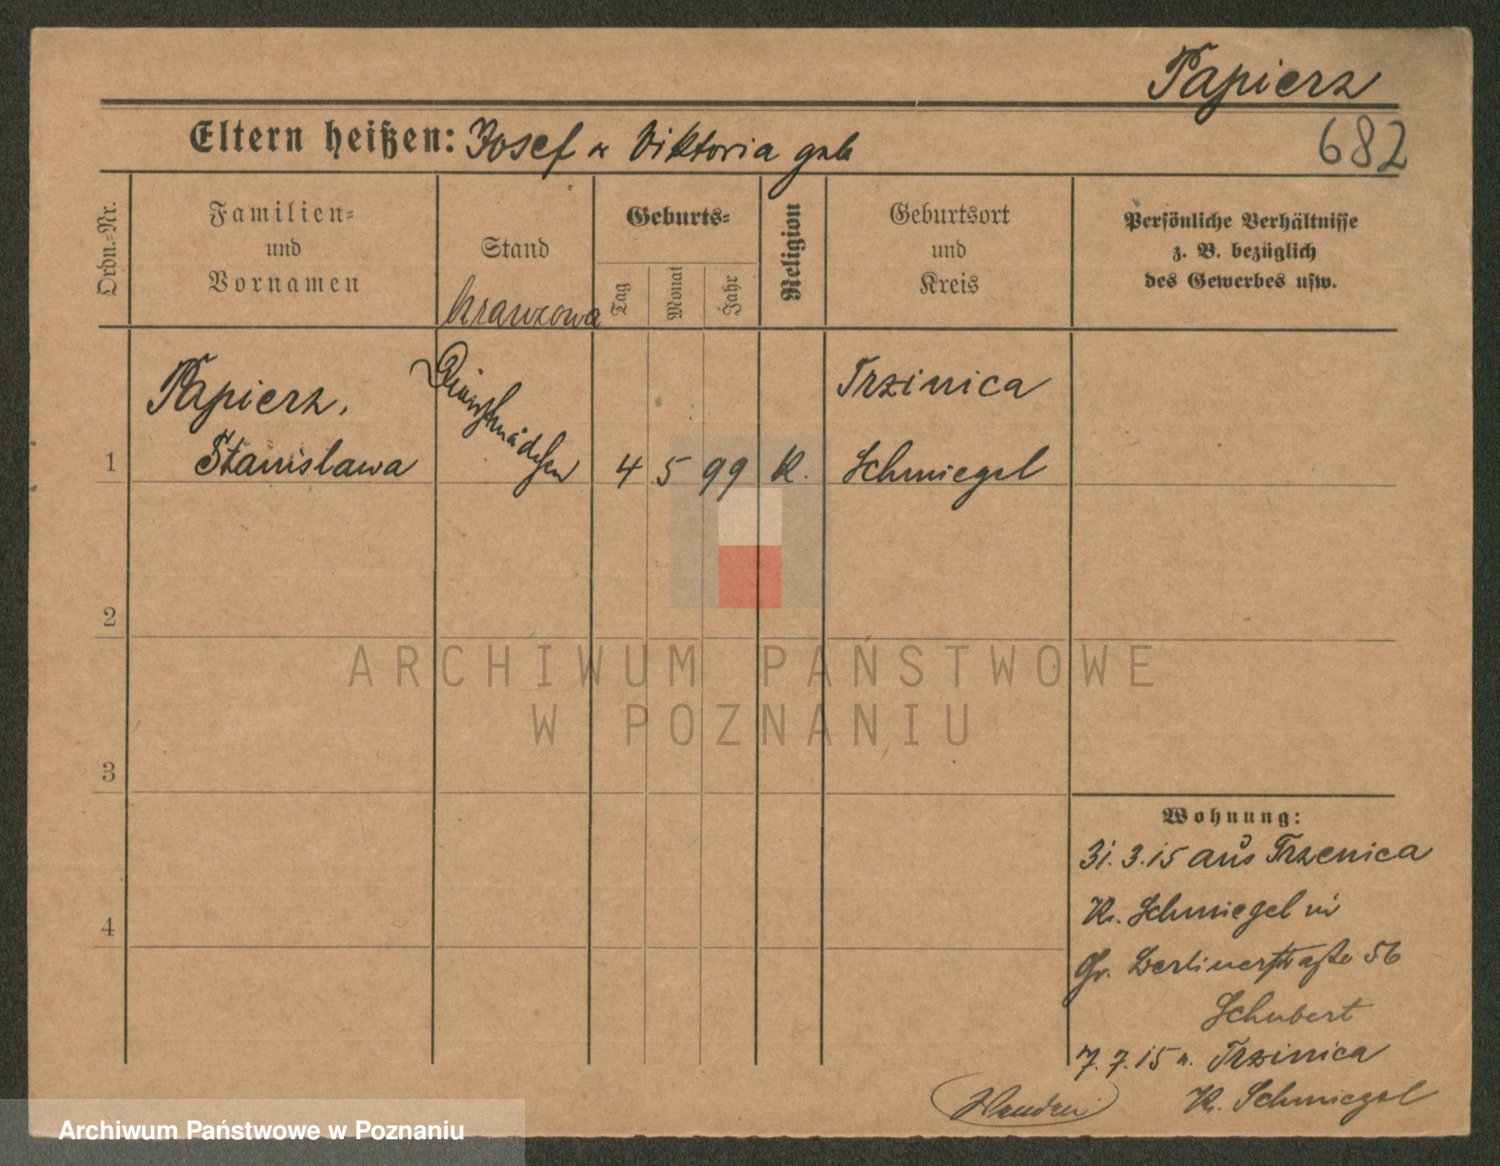 Papierz
682
Eltern heißen: Josef u Viktoria geb
Ordn.-Nr.
Familien-
und
Vornamen
Stand
krawcowa
Geburts-
Tag
Monat
Jahr
Religion
Geburtsort
und
Kreis
Persönliche Verhältnisse
z. B. bezüglich
des Gewerbes usw.
1
Papierz,
Stanislawa
Dienstmädchen
4 5 99 K.
Trzinica
Schmiegel
2
3
4
ARCHIWUM PAŃSTWOWE
W POZNANIU
Wohnung:
31.3.15 aus Trzenica
Kr. Schmiegel in
Gr. Berlinerstraße 56
Schubert
7.7.15 n. Trzinica
Kr. Schmiegel
Archiwum Państwowe w Poznaniu